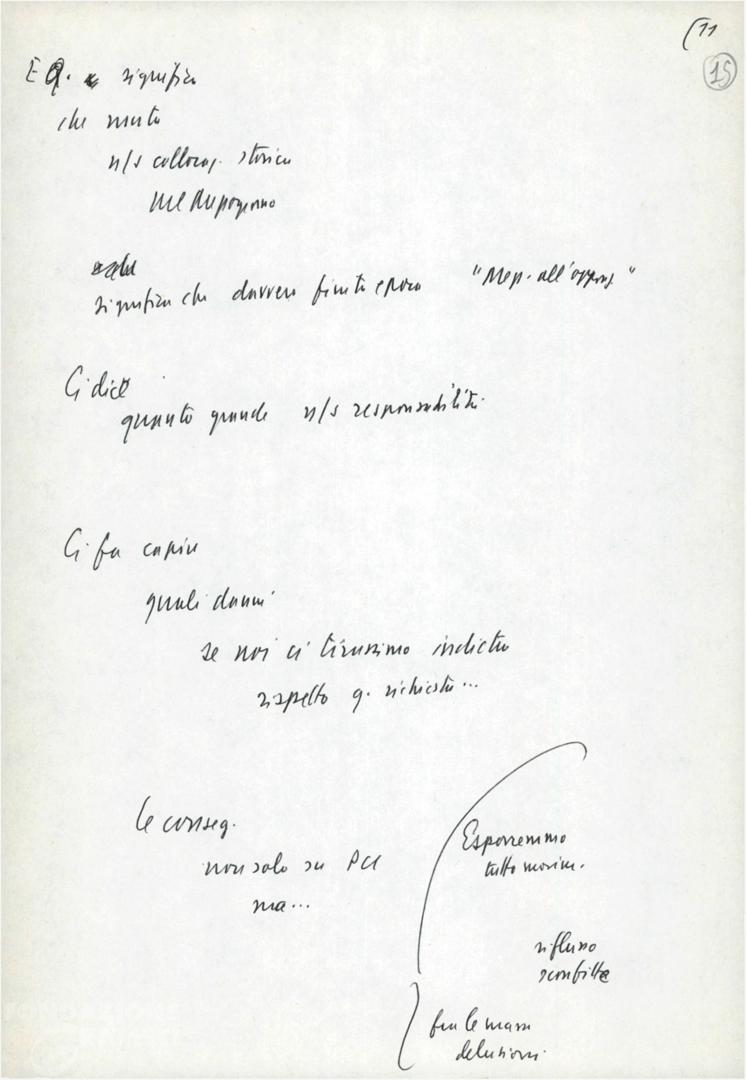 (11
15
E Q. significa
che muta
n/s collocaz. storica
nel dopoguerra
significa che davvero finita epoca "Mep. all'oppos."
Ci dice
quanto grande n/s responsabilità
Ci fa capire
quali danni
se noi ci tirassimo indietro
rispetto q. richiesta...
le conseg.
non solo su PCI
ma...
Esporremmo
tutto movim.
riflusso
sconfitta
fra le masse
delusioni